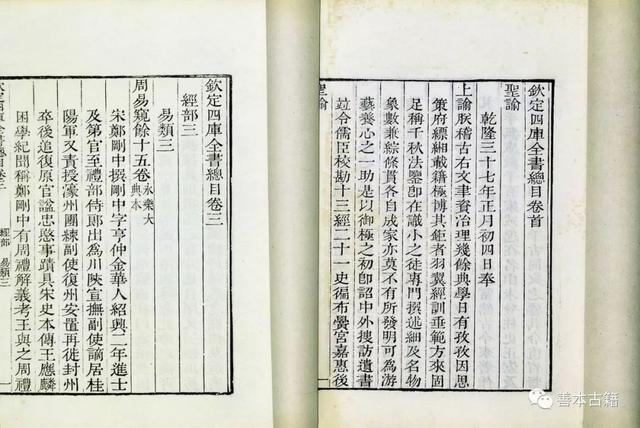 欽定四庫全書總目卷首
聖諭
乾隆三十七年正月初四日奉
上諭朕稽古右文聿資治理幾餘典學日有孜孜因思
策府縹緗載籍極博其鉅者羽翼經訓垂範方來固
足稱千秋法鑒即在識小之徒專門撰述細及名物
象數兼綜條貫各自成家亦莫不有所發明可為游
藝養心之一助是以御極之初即詔中外搜訪遺書
竝令儒臣校勘十三經二十一史徧布黌宮嘉惠後
聖諭
欽定四庫全書總目卷三
經部三
易類三
周易窺餘十五卷永樂大典本
宋鄭剛中撰剛中字亨仲金華人紹興二年進士
及第官至禮部侍郎出為川陜宣撫副使謫居桂
陽軍又責授濠州團練副使復州安置再徙封州
卒後追復原官諡忠愍事蹟具宋史本傳王應麟
困學紀聞稱鄭剛中有周禮解義考王與之周禮
經部 易類三 一
善本古籍